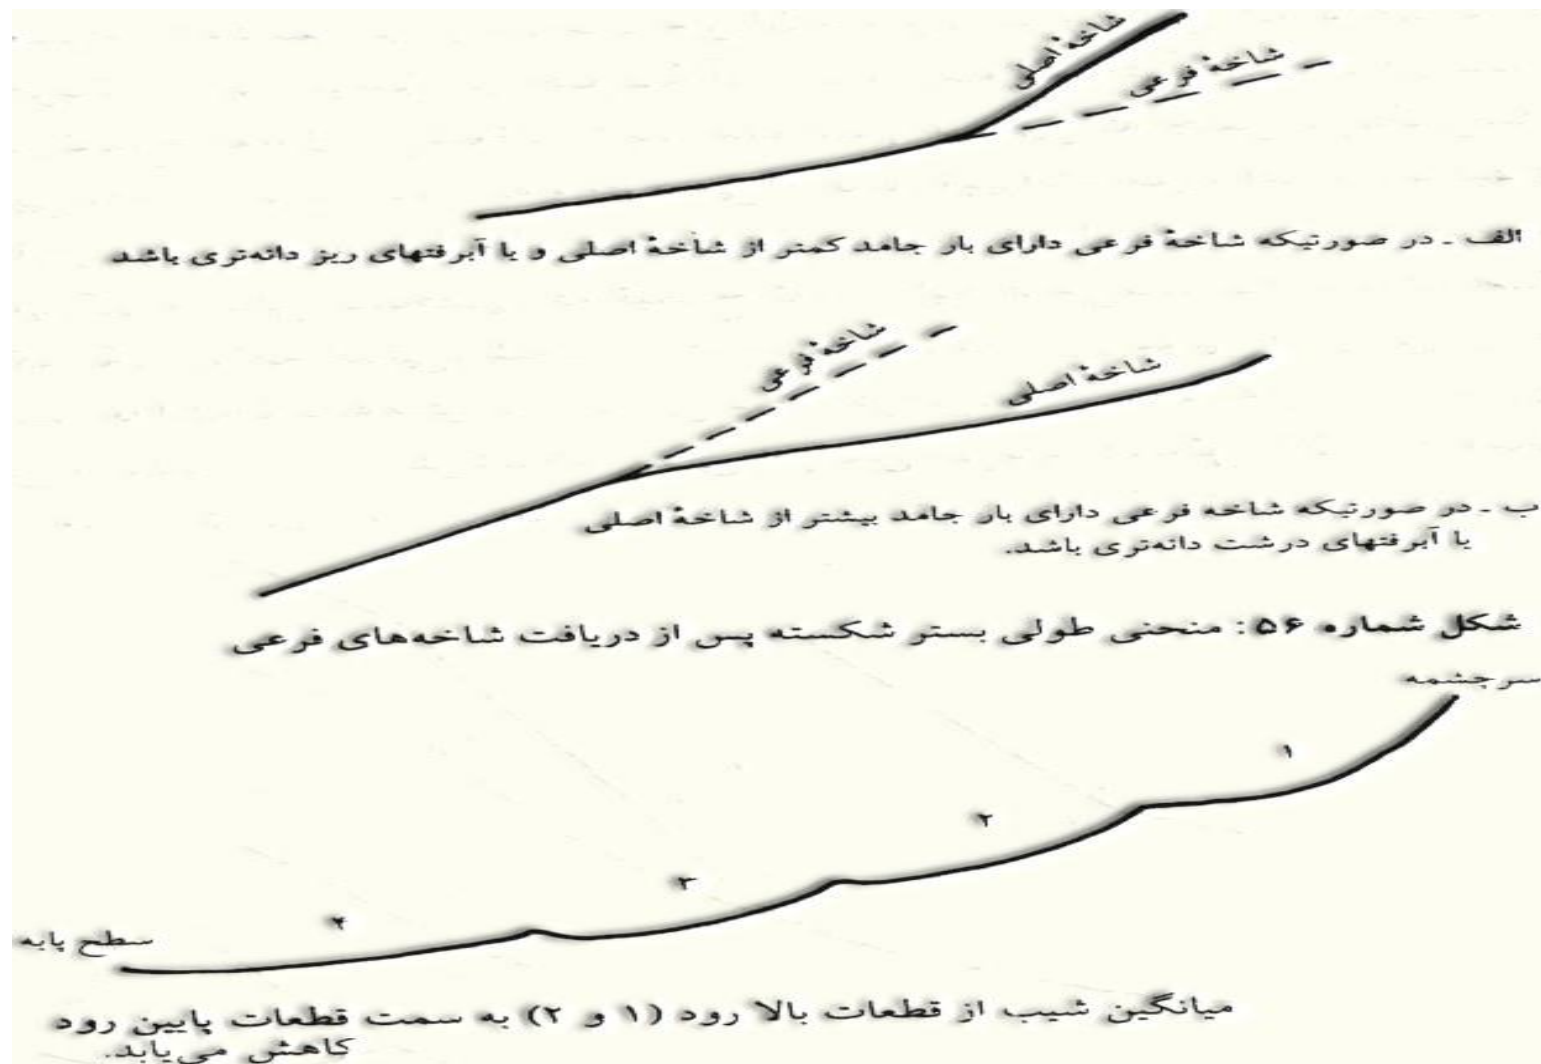 شاخهٔ اصلی
شاخهٔ فرعی
الف - در صورتیکه شاخهٔ فرعی دارای بار جامد کمتر از شاخهٔ اصلی و یا آبرفتهای ریز دانه‌تری باشد
شاخهٔ فرعی
شاخهٔ اصلی
ب - در صورتیکه شاخه فرعی دارای بار جامد بیشتر از شاخهٔ اصلی
یا آبرفتهای درشت دانه‌تری باشد.
شکل شماره ۵۶: منحنی طولی بستر شکسته پس از دریافت شاخه‌های فرعی
سرچشمه
۱
۲
۳
۴
سطح پایه
میانگین شیب از قطعات بالا رود (۱ و ۲) به سمت قطعات پایین رود
کاهش می‌یابد.